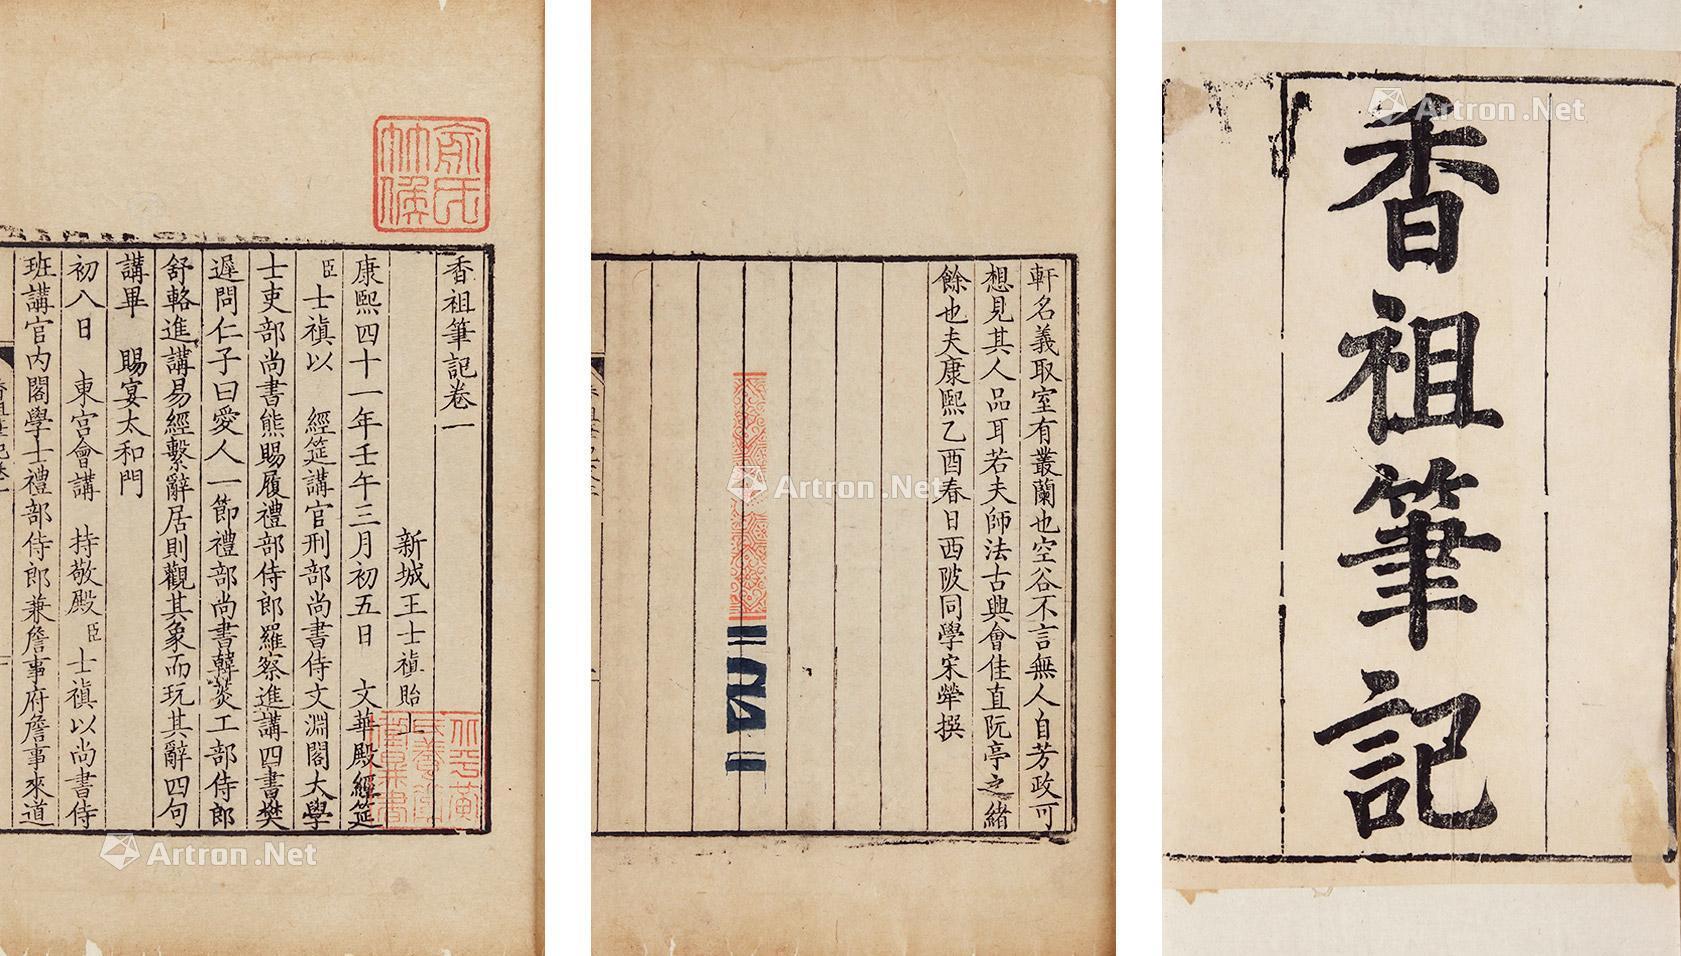 香祖筆記
軒名義取室有叢蘭也空谷不言無人自芳政可
想見其人品耳若夫師法古與會佳直阮亭之緒
餘也夫康熙乙酉春日西陂同學宋犖撰
香祖筆記卷一
新城王士禛貽上
康熙四十一年壬午三月初五日 文華殿經筵
臣士禛以 經筵講官刑部尚書侍文淵閣大學
士吏部尚書熊賜履禮部侍郎羅察進講四書樊
遲問仁子曰愛人一節禮部尚書韓菼工部侍郎
舒輅進講易經繫辭居則觀其象而玩其辭四句
講畢 賜宴太和門
初八日 東宮會講 持敬殿臣士禛以尚書侍
班講官內閣學士禮部侍郎兼詹事府詹事來道
俞氏
Artron.Net
Artron.Net
Artron.Net